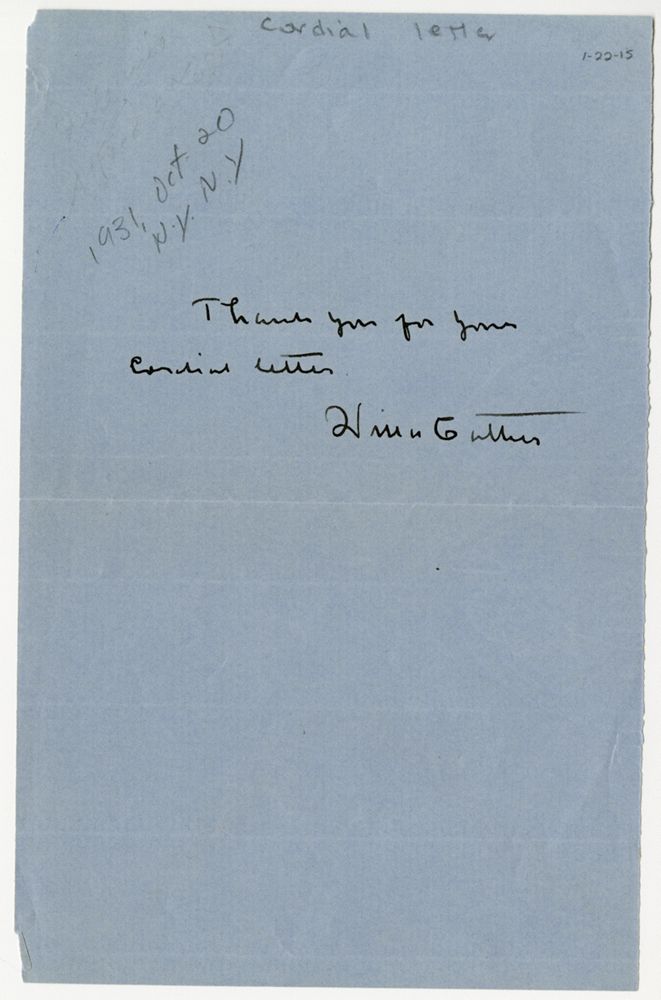 Cordial letter
1-22-15
1931, Oct. 20
N.Y. N.Y
Thank you for your
cordial letter.
Willa Cather